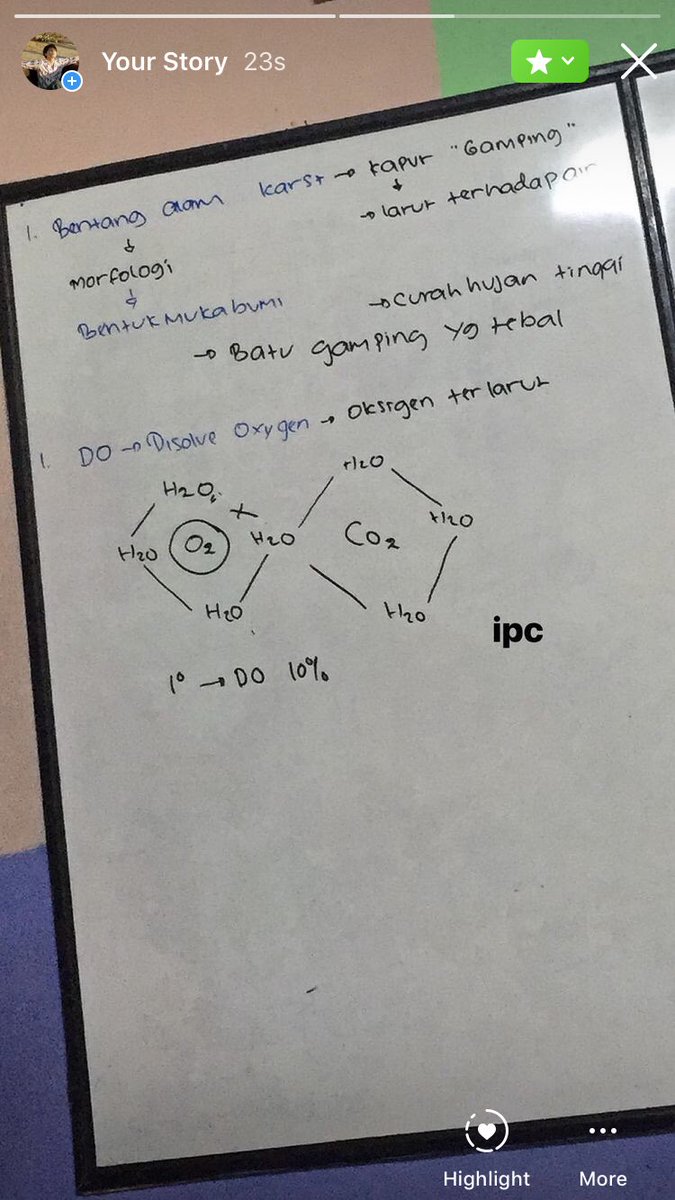 Your Story 23s
1. Bentang alam karst → kapur "Gamping"
↓
→ larut terhadap air
↓
morfologi
↓
Bentuk Muka bumi
→ curah hujan tinggi
→ Batu gamping yg tebal
1. DO → Disolve Oxygen → Oksigen terlarut
H2O
H2O
H2O O2 H2O CO2 H2O
H2O H2O
1° → DO 10%
ipc
Highlight More